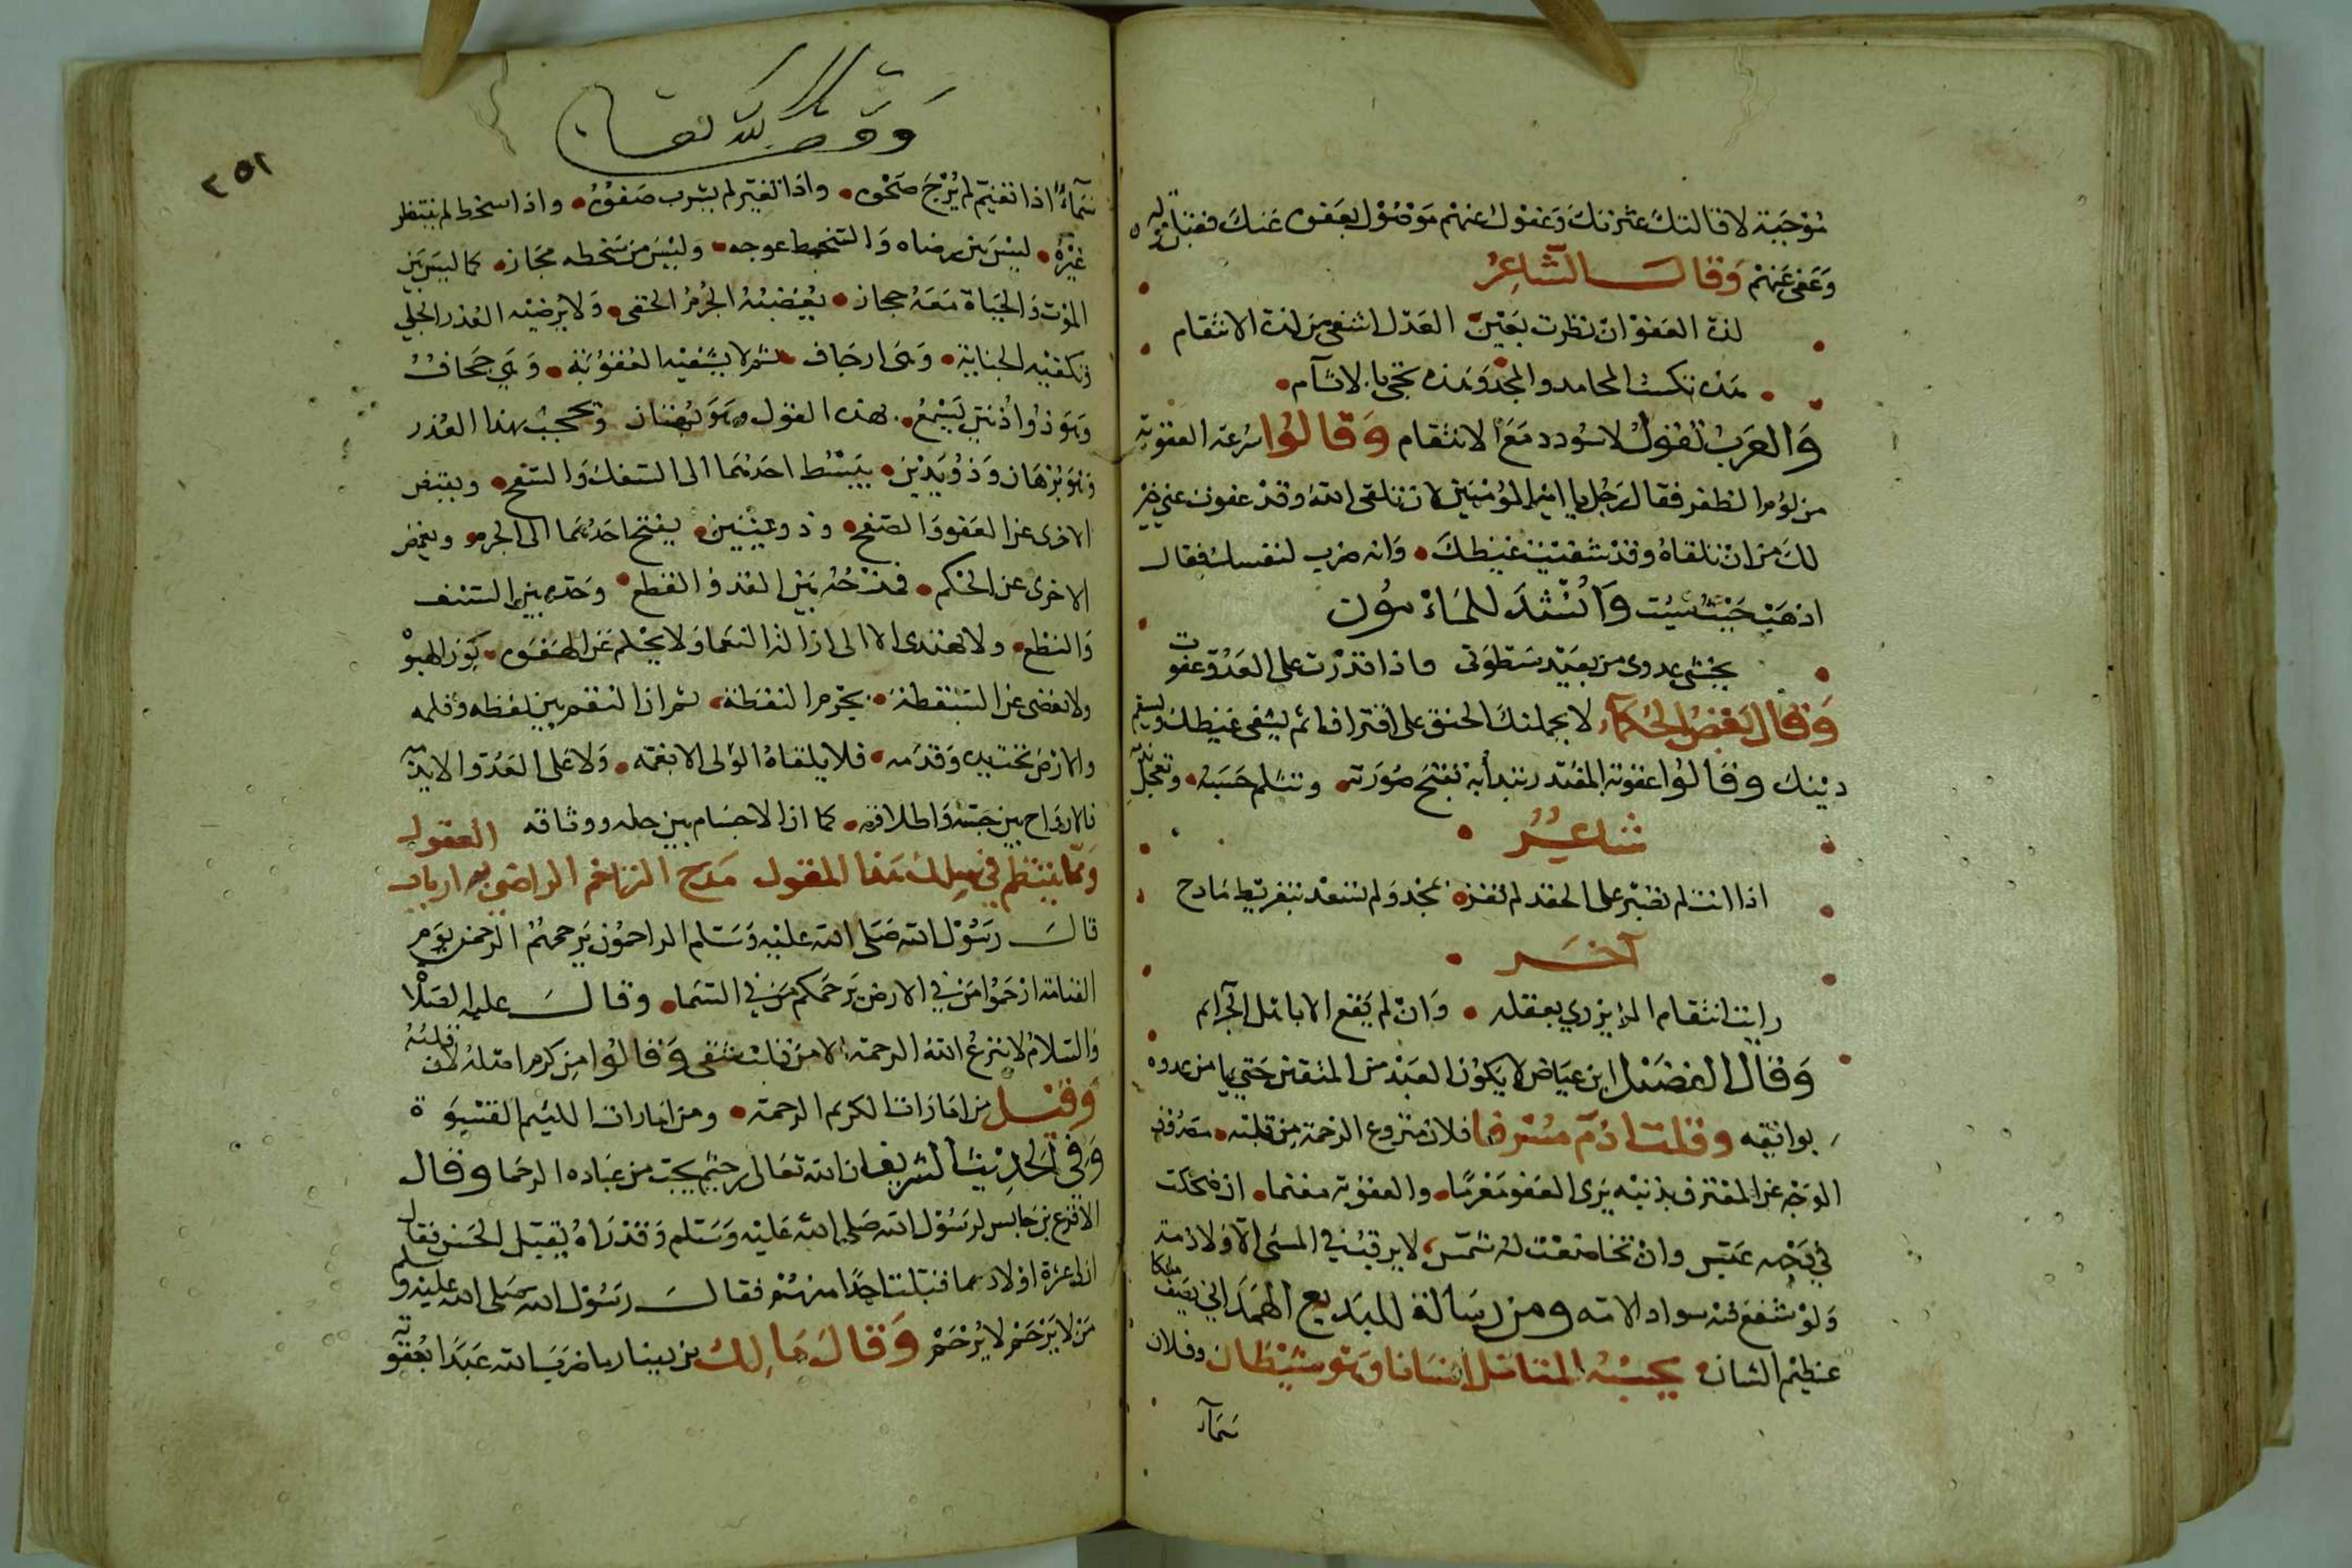 موجبة لاقالتك عثرتك وعفوك عنهم موصول بعفوه عنك فقبل منه
وعفى عنهم وقال الشاعر
لذة العفو ان نظرت بعين العدل اشفى من لذة الانتقام
هذه تكسب المحامد والمجد وهذه تجئ بالاثام
والعرب تقول لا سودد مع الانتقام وقالوا سرعة العقوبة
من لؤم الظفر فقال رجل يا امير المؤمنين لان تلقى الله وقد عفوت عني خير
لك من ان تلقاه وقد شفيت غيظك وانه ضرب لنفسك فقال
اذهب حيث شيت وانشد للمامون
يخشى عدوى من بعيد سطوتى فاذا قدرت على العدو عفوت
وقال بعض الحكماء لا يحملنك الحنق على اقتراف اثم يشفى غيظك ويسقم
دينك وقالوا عقوبة المقتدر تبدأ به تقبح صورته وتثلم حسبه وتعجل
شاعر
اذا انت لم تضبر على الحقد لم تفز بمجد ولم تسعد بتقريظ مادح
آخر
رايت انتقام المرء يزري بعقله وان لم يقع الا باهل الجرائم
وقال الفضيل ابن عياض لا يكون العبد من المتقين حتى يامن عدوه
بوائقه وقلت اذم مسرفا فلان منزوع الرحمة من قلبه مصروف
الوجه عن المقترف بذنبه يرى العفو مغرما والعقوبة مغنما ان ضحكت
في وجهه عبس وان تخاضعت له شمس لا يرقب في المسئ الا ولا ذمة
ولو شفع فيه سواد الامه ومن رسالة للبديع الهمداني يصف ملكا
عظيم الشان يحسبه المتامل انسانا وهو شيطان وفلان
سماء
وقف لله تعالى
٢٥١
سماء اذا تغيم لم يرج صحوه واذا تغير لم يشرب صفوه واذا سخط لم ينتظر
غيره ليس بين رضاه والسخط عوجه وليس من سخطه مجاز كما ليس بين
الموت والحياة معه حجاز يغضبه الجرم الخفى ولا يرضيه العذر الجلي
وتكفيه الجناية وهى ارجاف ثم لا يشفيه العقوبة وهي جحاف
وهو ذوا اذنين يسمع بهذه القول وهو بهتان وتحجب بهذا العذر
وهو برهان وذو يدين يبسط احدهما الى السفك والسفح ويقبض
الاخرى عن العفو والصفح وذو عينين يفتح احدهما الى الجرم ويغمض
الاخرى عن الحكم فمزحه بين القد والقطع وحده بين السيف
والنطع ولا يهتدى الا الى ازالة النعما ولا يحلم عن الهفوه كوزن الهبو
ولا يغضى عن السقطة بجرم النقطة ثم ان النقم بين لفظه وقلمه
والارض تحت يده وقدمه فلا يلقاه الولى الا بغمه ولا على العدو الا بذمه
فالارواح بين حبسه واطلاقه كما ان الاجسام بين حله ووثاقه
ومما ينتظم في سلك هذا المقول مدح التراحم الراضى به ارباب العقول
قال رسول الله صلى الله عليه وسلم الراحمون يرحمهم الرحمن يوم
القيامة ارحموا من في الارض يرحمكم من في السما وقال عليه الصلاة
والسلام لا ينزع الله الرحمة الا من قلب شقى وقالوا من كرم اصله لان قلبه
وقيل من امارات الكريم الرحمة ومن امارات اللئيم القسوة
وفي الحديث الشريف ان الله تعالى رحيم يحب من عباده الرحما وقال
الاقرع بن حابس لرسول الله صلى الله عليه وسلم وقد راه يقبل الحسن فقال
ان لى عشرة اولاد ما قبلت احدا منهم فقال رسول الله صلى الله عليه وسلم
من لا يرحم لا يرحم وقال مالك بن دينار ما ضرب الله عبدا بعقوبة